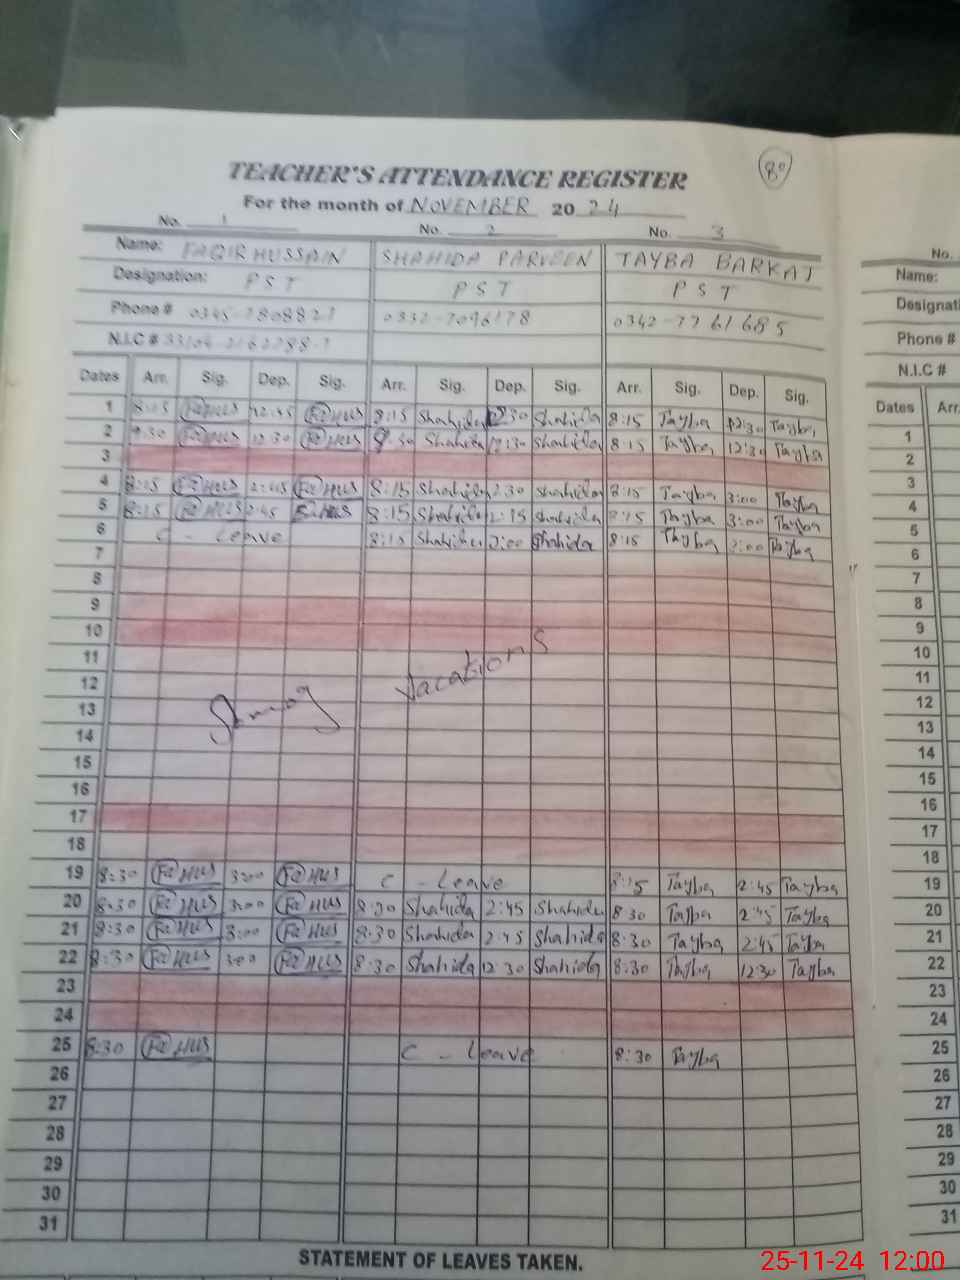 TEACHER'S ATTENDANCE REGISTER
80
For the month of NOVEMBER 2024
No. 1 No. 2 No. 3
Name: FAQIR HUSSAIN SHAHIDA PARVEEN TAYBA BARKAT
Designation: PST PST PST
Phone # 0332-7096178 0342-7761685
N.I.C #
Dates Arr. Sig. Dep. Sig. Arr. Sig. Dep. Sig. Arr. Sig. Dep. Sig.
1 8:15 FaHus 12:45 FaHus 8:15 Shahida 12:30 Shahida 8:15 Tayba 12:30 Tayba
2 FaHus 12:30 FaHus Shahida 12:30 Shahida 8:15 Tayba 12:30 Tayba
3
4 8:15 FaHus 2:45 FaHus 8:15 Shahida 2:30 Shahida 8:15 Tayba 3:00 Tayba
5 8:15 FaHus 2:45 FaHus 8:15 Shahida 2:15 Shahida 8:15 Tayba 3:00 Tayba
6 C - Leave 8:15 Shahida Shahida 8:15 Tayba Tayba
7
8
9
10
11
12
13
14
Smog Vacations
15
16
17
18
19 8:30 FaHus 3:00 FaHus C - Leave 8:15 Tayba 2:45 Tayba
20 8:30 FaHus 3:00 FaHus 8:30 Shahida 2:45 Shahida 8:30 Tayba 2:45 Tayba
21 8:30 FaHus 3:00 FaHus 8:30 Shahida 2:45 Shahida 8:30 Tayba 2:45 Tayba
22 8:30 FaHus 3:00 FaHus 8:30 Shahida 12:30 Shahida 8:30 Tayba 12:30 Tayba
23
24
25 8:30 FaHus C - Leave 8:30 Tayba
26
27
28
29
30
31
STATEMENT OF LEAVES TAKEN.
No.
Name:
Designati
Phone #
N.I.C #
Dates Arr.
1
2
3
4
5
6
7
8
9
10
11
12
13
14
15
16
17
18
19
20
21
22
23
24
25
26
27
28
29
30
31
25-11-24 12:00